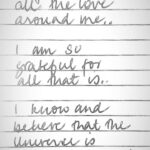 all the love
around me..
I am so
grateful for
all that is..
I know and
believe that the
Universe is